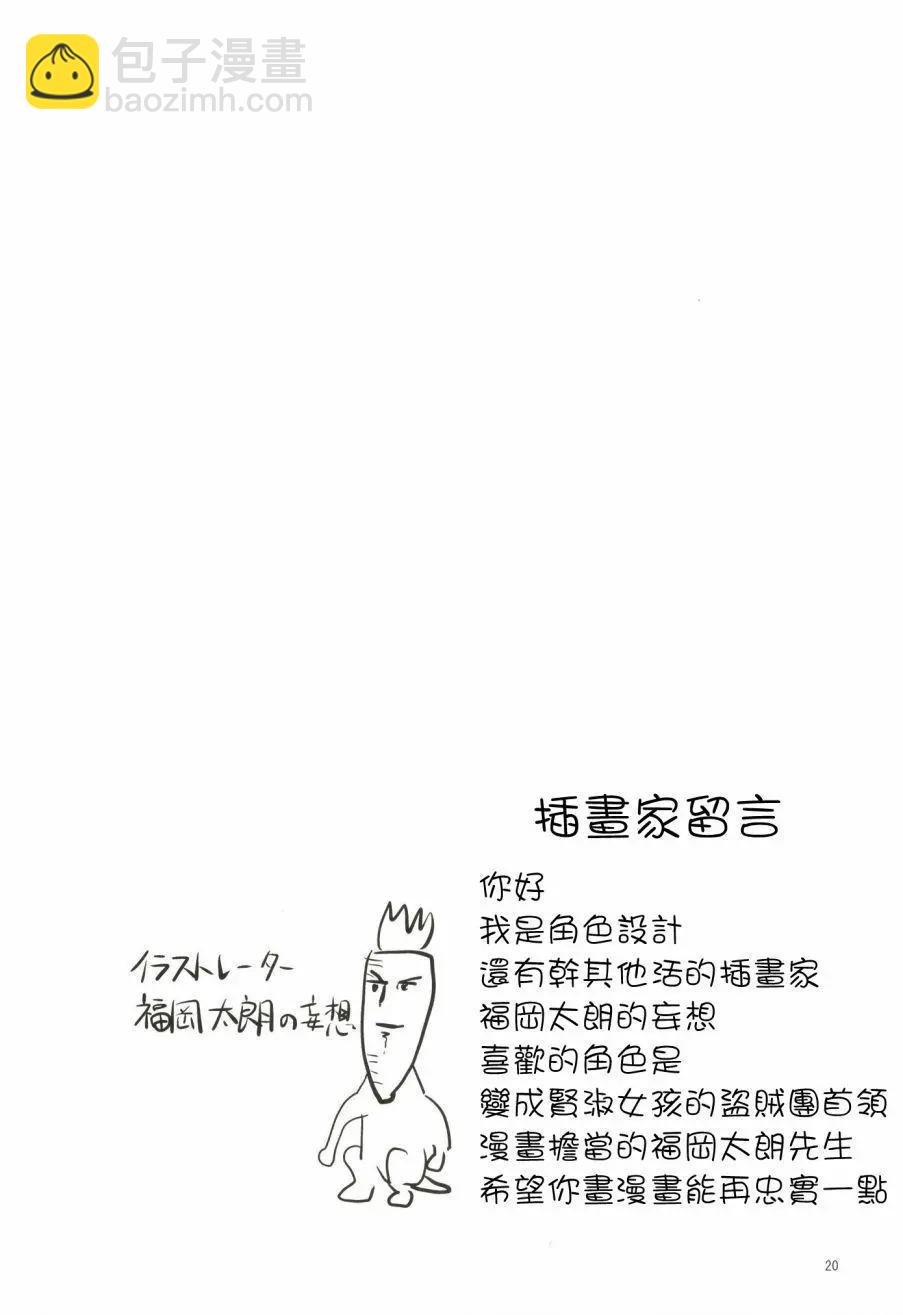 包子漫畫
baozimh.com
插畫家留言
你好
我是角色設計
還有幹其他活的插畫家
福岡太朗的妄想
喜歡的角色是
變成賢淑女孩的盜賊團首領
漫畫擔當的福岡太朗先生
希望你畫漫畫能再忠實一點
イラストレーター
福岡太朗の妄想
20